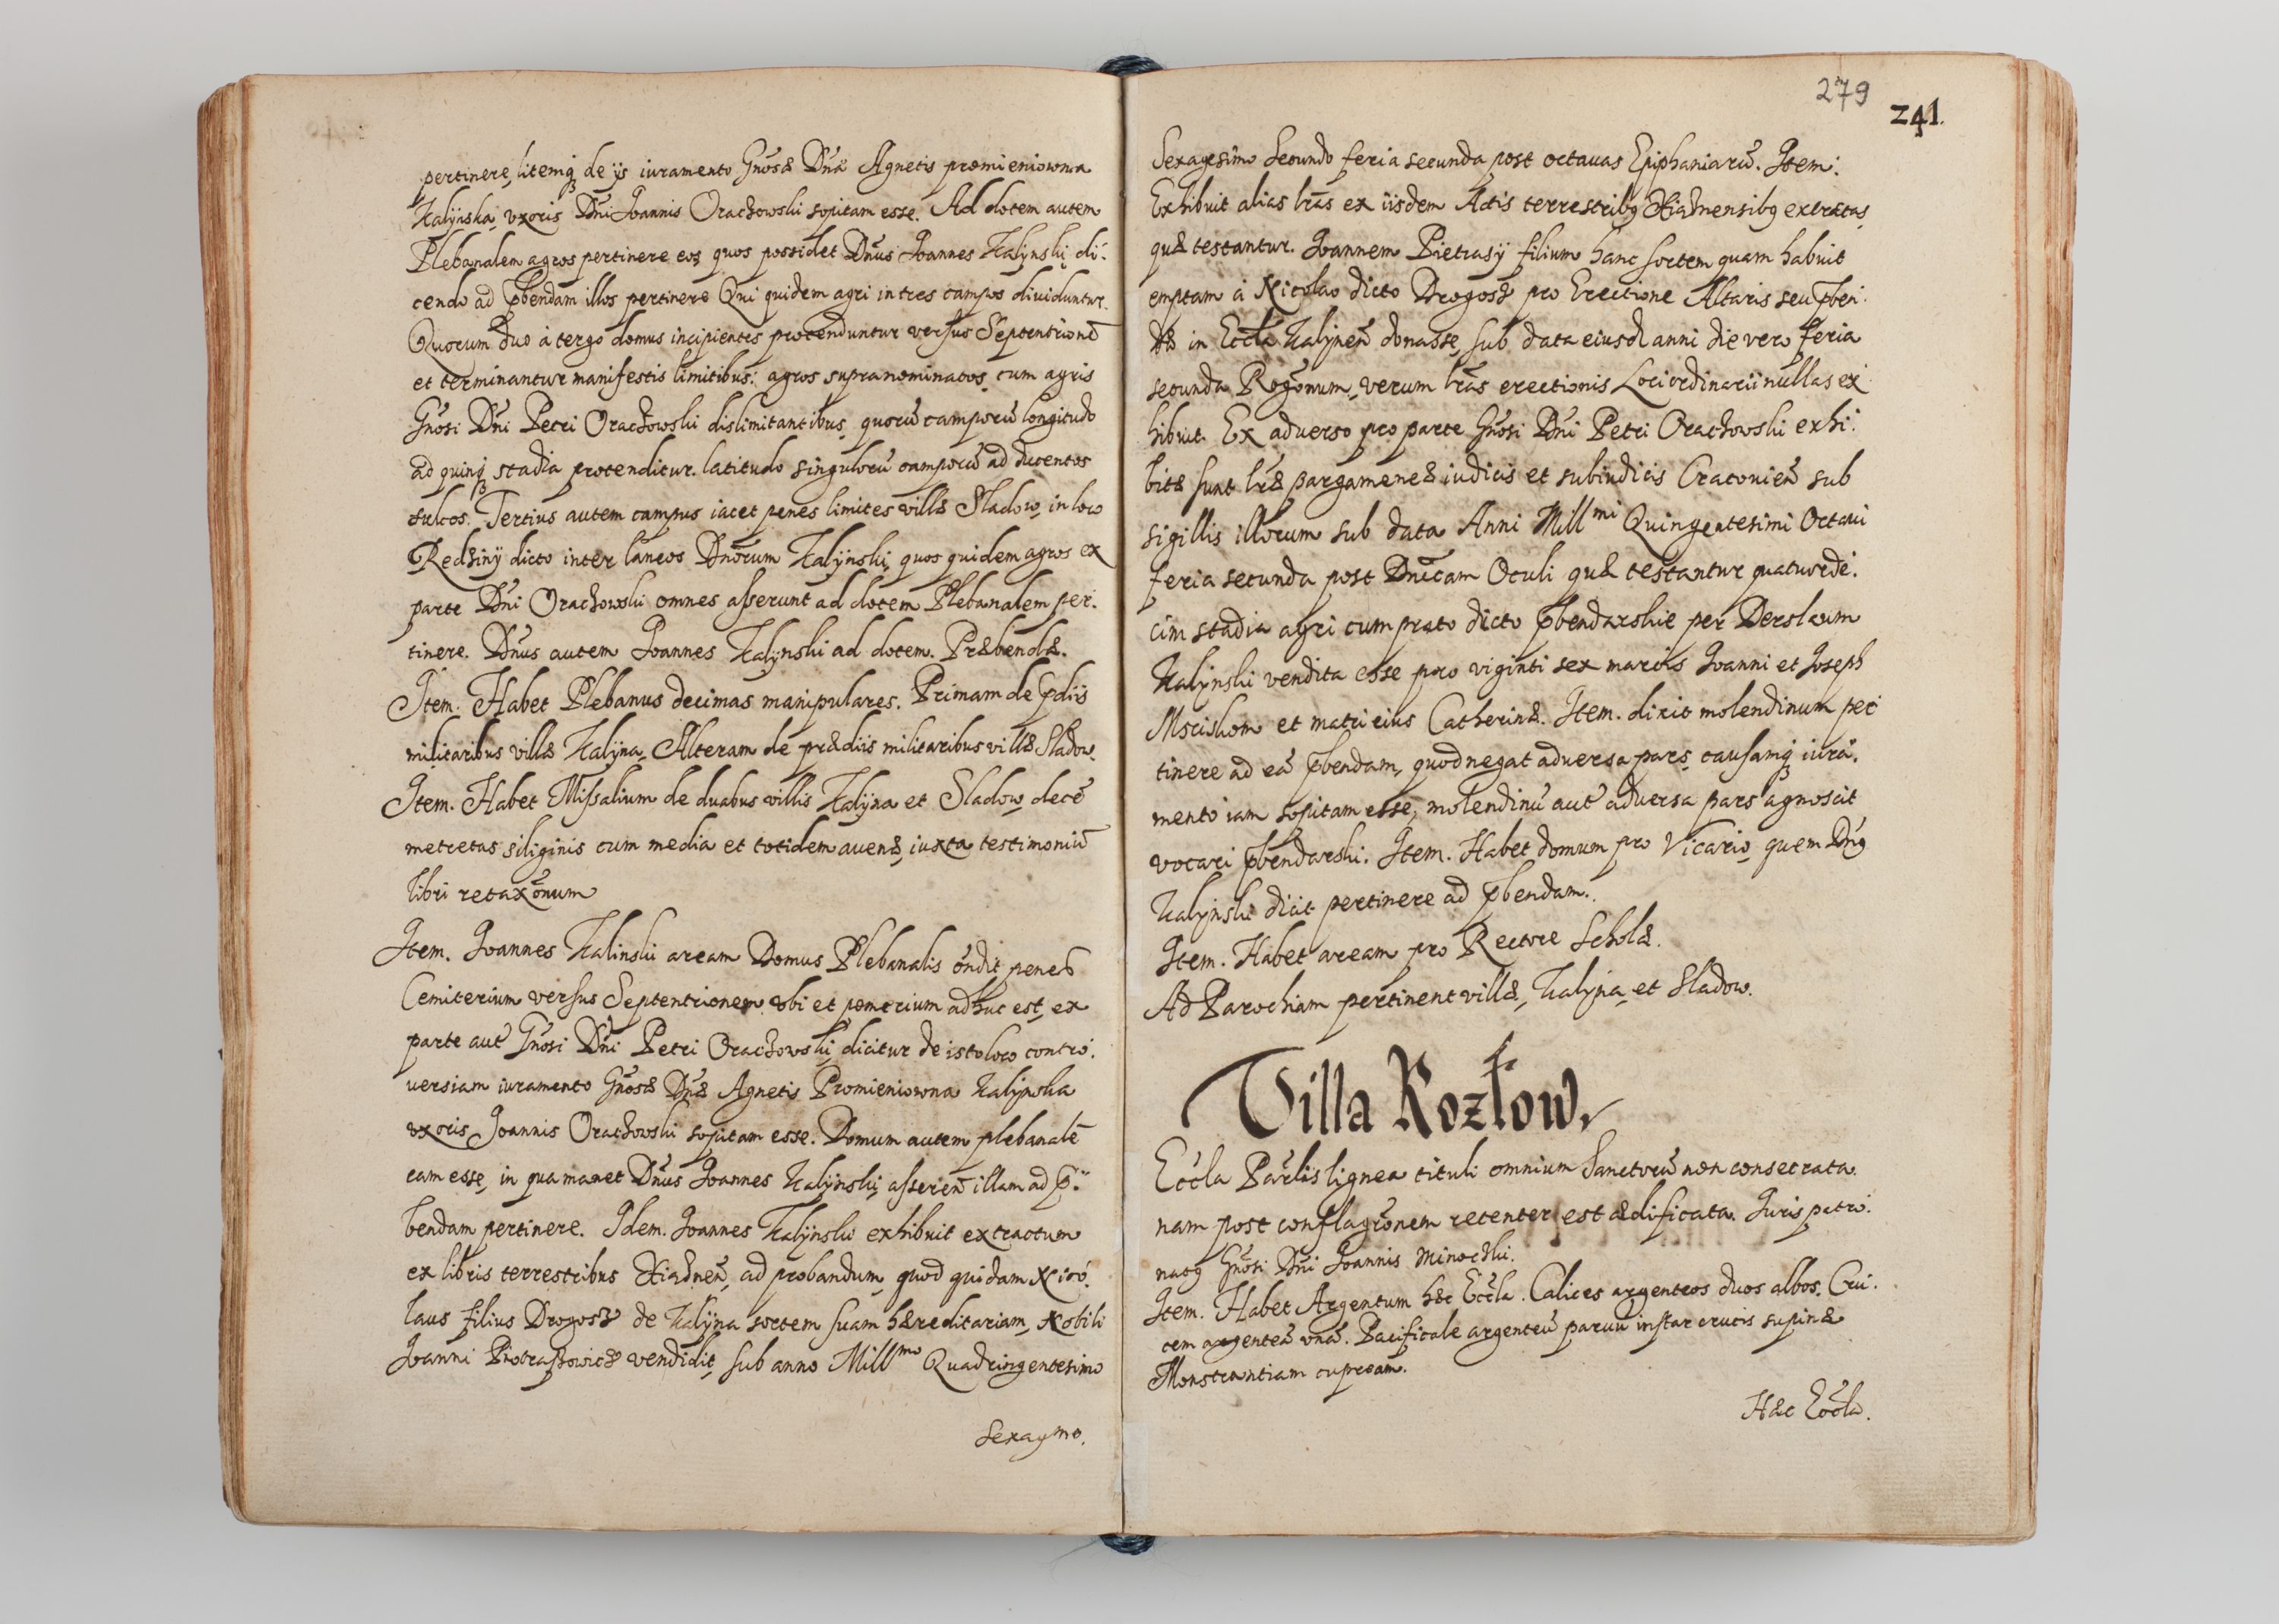 pertinere, litemq; de ijs iuramento Gnosæ Dnæ Agnetis promieniowna
Kalijnska, vxoris Dni Joannis Orachowski sopitam esse. Ad dotem autem
Plebanalem agros pertinere eos quos possidet Dnus Joannes Kalijnski di-
cendo ad pbendam illos pertinere Qui quidem agri in tres campos diuiduntur.
Quorum duo à tergo domus incipientes protenduntur versus Septentrionē
et terminantur manifestis limitibus: agros supranominatos cum agris
Gnosi Dni Petri Orachowski dislimitantibus, quorū camporū longitudo
ad quinq; stadia protenditur. latitudo singulorū camporū ad ducentos
sulcos. Tertius autem campus iacet penes limites villæ Sladow, in loco
Redziny dicto inter laneos Dnorum Kalijnski, quos quidem agros ex
parte Dni Orachowski omnes asserunt ad dotem Plebanalem per-
tinere. Dnus autem Joannes Kalijnski ad dotem. Præbendæ.
Item. Habet Plebanus decimas manipulares. Primam de pdiis
militaribus villæ Kalijna, Alteram de prædiis militaribus villæ Sladow.
Item. Habet Missalium de duabus villis Kalijna et Sladow, decē
metretas siliginis cum media et totidem auenæ, iuxta testimoniū
libri retaxōnum
Item. Joannes Kalinski aream Domus Plebanalis ōndit penes
Cemiterium versus Septentrionem vbi et pomerium adhuc est, ex
parte aut Gnosi Dni Petri Orachowski, dicitur de isto loco contro-
uersiam iuramento Gnosæ Dnæ Agnetis Promieniowna Kalijnska
vxoris Joannis Orachowski sopitam esse. Domum autem plebanalē
eam esse, in qua manet Dnus Joannes Kalijnski, asserēn illam ad p-
bendam pertinere. Idem. Joannes Kalijnski exhibuit extractum
ex libris terrestribus Xiaznēn, ad probandum, quod quidam Nico-
laus filius Drogosz de Kalijna sortem suam hæreditariam, Nobili
Joanni Piotraszowicz vendidit, sub anno Mill mo Quadringentesimo
Sexagmo.
279
241.
Sexagesimo Secundo feria secunda post octauas Epiphaniarū. Item.
Exhibuit alias lrās ex iisdem Actis terrestribq Xiaznensibq extractas
quæ testantur. Joannem Pietrasij filium hanc sortem quam habuit
emptam à Nicolao dicto Drogosz pro Erectione Altaris seu pben-
dæ in Eccla Kalijnēn donasse, sub data eiusd anni die vero feria
secunda Rogōnum, verum lrās erectionis Loci ordinarii nullas ex-
hibuit. Ex aduerso pro parte Gnosi Dni Petri Orachowski exhi-
bitæ sunt lræ pargameneæ iudicis et subiudicis Cracouiēn sub
sigillis illorum sub data Anni Mill mi Quingentesimi Octaui
feria secunda post Dnicam Oculi quæ testantur quatuorde-
cim stadia agri cum prato dicto pbendarskie per Derslaum
Kalijnski vendita esse pro viginti sex marcis Joanni et Joseph
Msciskom et matri eius Catherinæ. Item. dixit molendinum per
tinere ad eā pbendam, quod negat aduersa pars causamq; iura-
mento iam sopitam esse, molendinū aut aduersa pars agnoscit
vocari pbendarski. Item. Habet domum pro Vicario, quem Dnq
Kalijnski dicit pertinere ad pbendam.
Item. Habet aream pro Rectore Scholæ.
Ad Parochiam pertinent villæ, Kalijna, et Sladow.
Villa Kozłow.
Eccla Parlis lignea tituli omnium Sanctorū non consecrata.
nam post conflagrōnem recenter est ædificata. Juris patro-
natq Gnosi Dni Joannis Minoczki.
Item. Habet Argentum hæc Eccla. Calices argenteos duos albos. Cru-
cem argenteā vnā. Pacificale argenteū paruū instar crucis supinæ
Monstrantiam cupream.
Hæc Eccla.